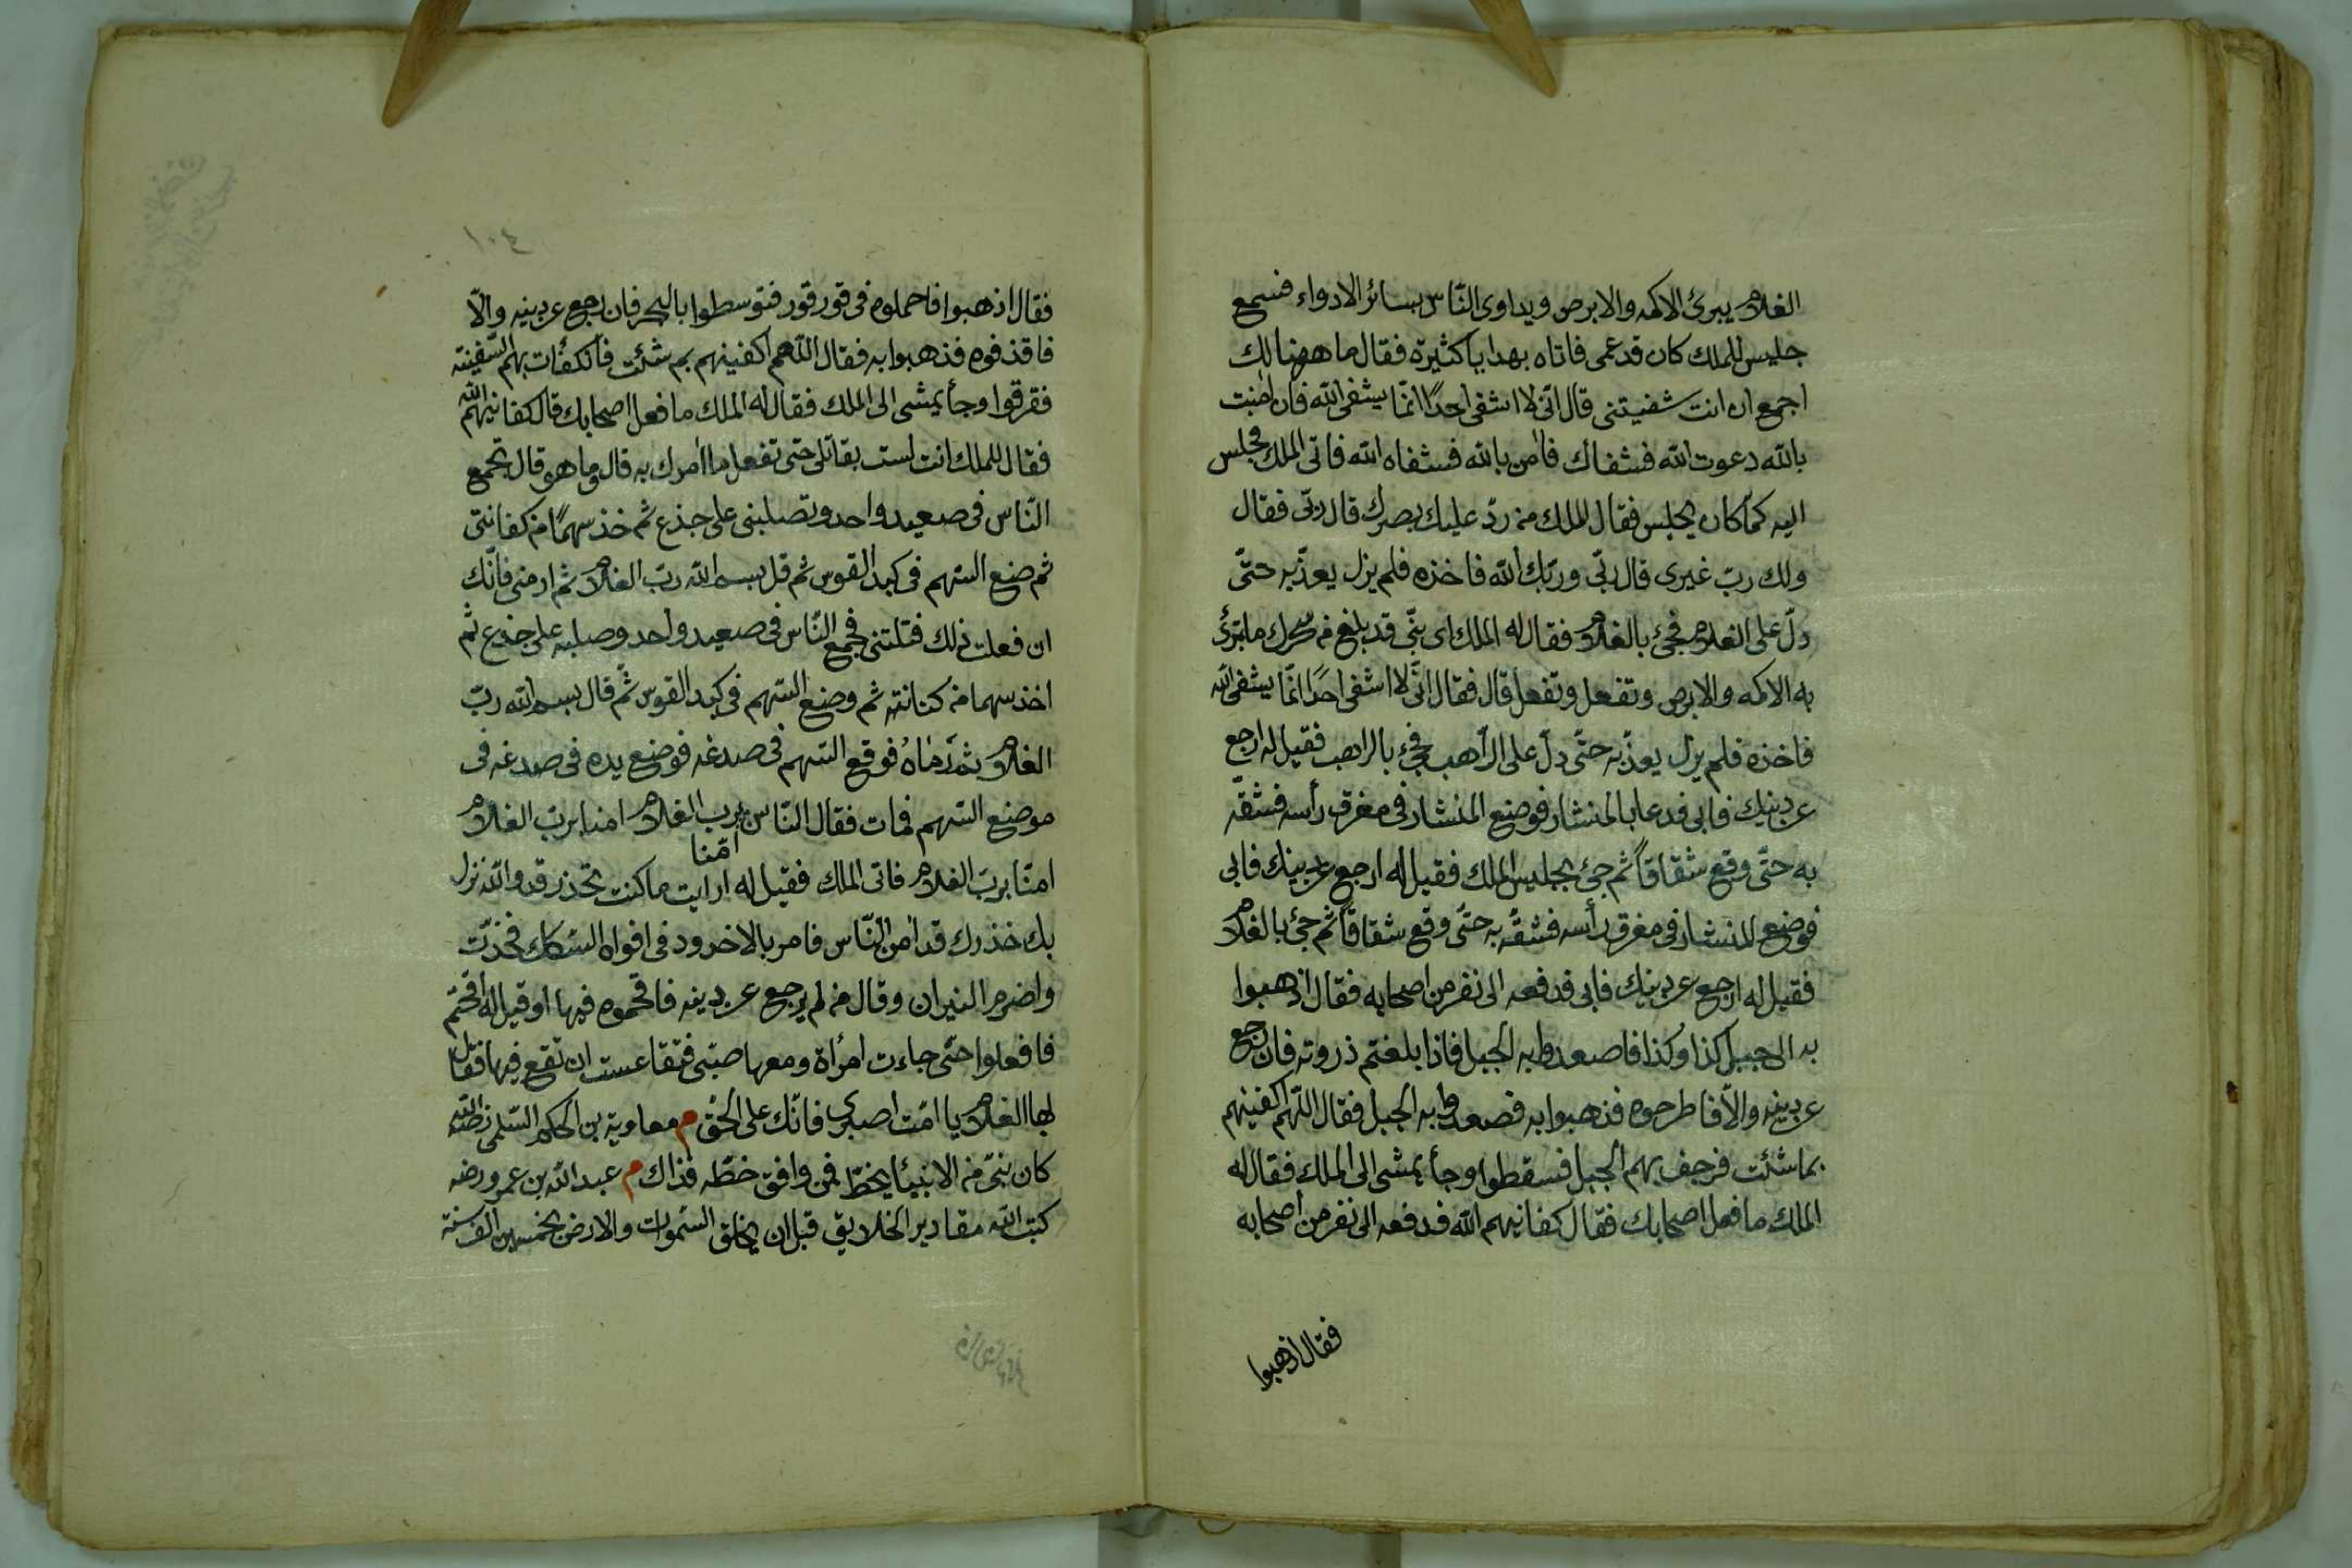 الغلام يبرئ الاكمه والابرص ويداوى النّاس بسائر الادواء فسمع
جليس للملك كان قد عمى فاتاه بهدايا كثيرة فقال ما ههنا لك
اجمع ان انت شفيتنى قال انّى لا اشفى احدًا انّما يشفى الله فان امنت
بالله دعوت الله فشفاك فامن بالله فشفاه الله فاتى الملك فجلس
اليه كما كان يجلس فقال الملك من ردّ عليك بصرك قال ربّى فقال
ولك ربّ غيرى قال ربّى وربّك الله فاخذه فلم يزل يعذّبه حتّى
دلّ على الغلام فجئ بالغلام فقال له الملك اى بنّى قد بلغ من سحرك ما تبرئ
به الاكمه والابرص وتفعل وتفعل قال فقال انّى لا اشفى احدًا انّما يشفى الله
فاخذه فلم يزل يعذّبه حتّى دلّ على الرّاهب فجئ بالراهب فقيل له ارجع
عن دينك فابى فدعا بالمنشار فوضع المنشار فى مفرق رأسه فشقّه
به حتّى وقع شقاقاً ثم جئ بجليس الملك فقيل له ارجع عن دينك فابى
فوضع المنشار فى مفرق رأسه فشقّه به حتّى وقع شقاقاً ثم جئ بالغلام
فقيل له ارجع عن دينك فابى فدفعه الى نفر من اصحابه فقال اذهبوا
به الى جبل كذا وكذا فاصعدوا به الجبل فاذا بلغتم ذروته فان رجع
عن دينه والّا فاطرحوه فذهبوا به فصعدوا به الجبل فقال اللّهم اكفنيهم
بما شئت فرجف بهم الجبل فسقطوا وجأ يمشى الى الملك فقال له
الملك ما فعل اصحابك فقال كفانيهم الله فدفعه الى نفر من اصحابه
فقال اذهبوا
١٠٤
فقال اذهبوا فاحملوه فى قور قور فتوسطوا بالبحر فان رجع عن دينه والّا
فاقذفوه فذهبوا به فقال اللّهم اكفنيهم بم شئت فانكفأت بهم السّفينة
فغرقوا وجأ يمشى الى الملك فقال له الملك ما فعل اصحابك قال كفانيهم الله
فقال للملك انت لست بقاتلى حتى تفعل ما امرك به قال وما هو قال تجمع
النّاس فى صعيد واحد وتصلبنى على جذع ثم خذ سهمًا من كنانتى
ثم ضع السّهم فى كبد القوس ثم قل بسم الله ربّ الغلام ثم ارمنى فانّك
ان فعلت ذلك قتلتنى فجمع النّاس فى صعيد واحد وصلبه على جذع ثم
اخذ سهما من كنانته ثم وضع السّهم فى كبد القوس ثم قال بسم الله ربّ
الغلام ثم رماه فوقع السّهم فى صدغه فوضع يده فى صدغه فى
موضع السّهم فمات فقال النّاس برب الغلام امنا برب الغلام
امّنا
امنّا بربّ الغلام فاتى الملك فقيل له ارايت ما كنت تحذر قد والله نزل
بك حذرك قد امن النّاس فامر بالاخدود فى افواه السّكك فخدّت
واضرم النيران وقال من لم يرجع عن دينه فاقحموه فيها او قيل له اقتحم
فافعلوا حتّى جاءت امرأة ومعها صبّى فتقاعست ان تقع فيها فقال
لها الغلام يا امّت اصبرى فانّك على الحقّ م معاوية بن الحكم السّلمى رضى الله
كان نبىّ من الانبيأ يخطّ فمن وافق خطّه فذاك م عبد الله بن عمرو رضه
كتب الله مقادير الخلايق قبل ان يخلق السّموات والارض بخمسين الف سنة